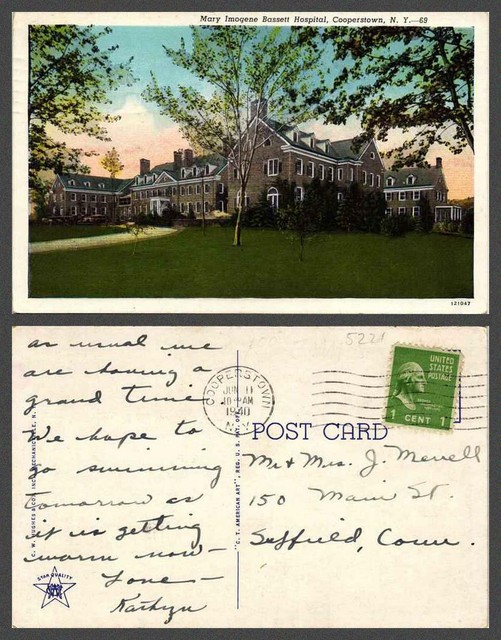 Mary Imogene Bassett Hospital, Cooperstown, N. Y.—69
121047
5221
as usual we
are having a
grand time
We hope to
go swimming
tomorrow as
it is getting
warm now—
Love—
Kathryn
C. W. HUGHES & CO., INC., MECHANICVILLE, N.
STAR QUALITY
"C. T. AMERICAN ART", REG. U. S.
COOPERSTOWN
JUN 11
10 AM
1940
N.Y.
UNITED
STATES
POSTAGE
1 CENT 1
POST CARD
Mr & Mrs. J. Merrell
150 Main St.
Suffield, Conn.